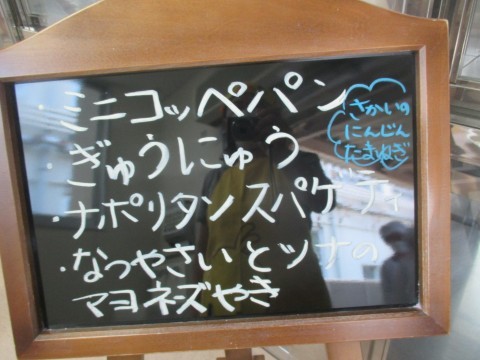 ・ミニコッペパン
・ぎゅうにゅう
・ナポリタンスパゲティ
・なつやさいとツナの
マヨネーズやき
さかいの
にんじん
たまねぎ